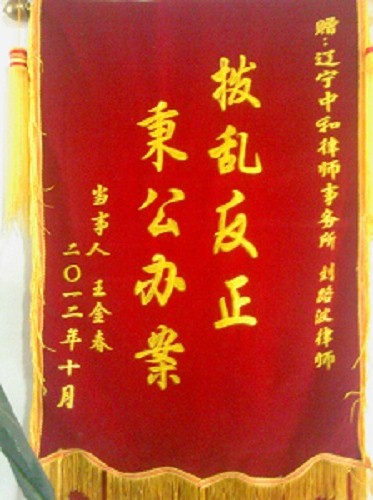 赠:辽宁中和律师事务所 刘路波律师
拨乱反正
秉公办案
当事人 王金春
二〇一二年十月